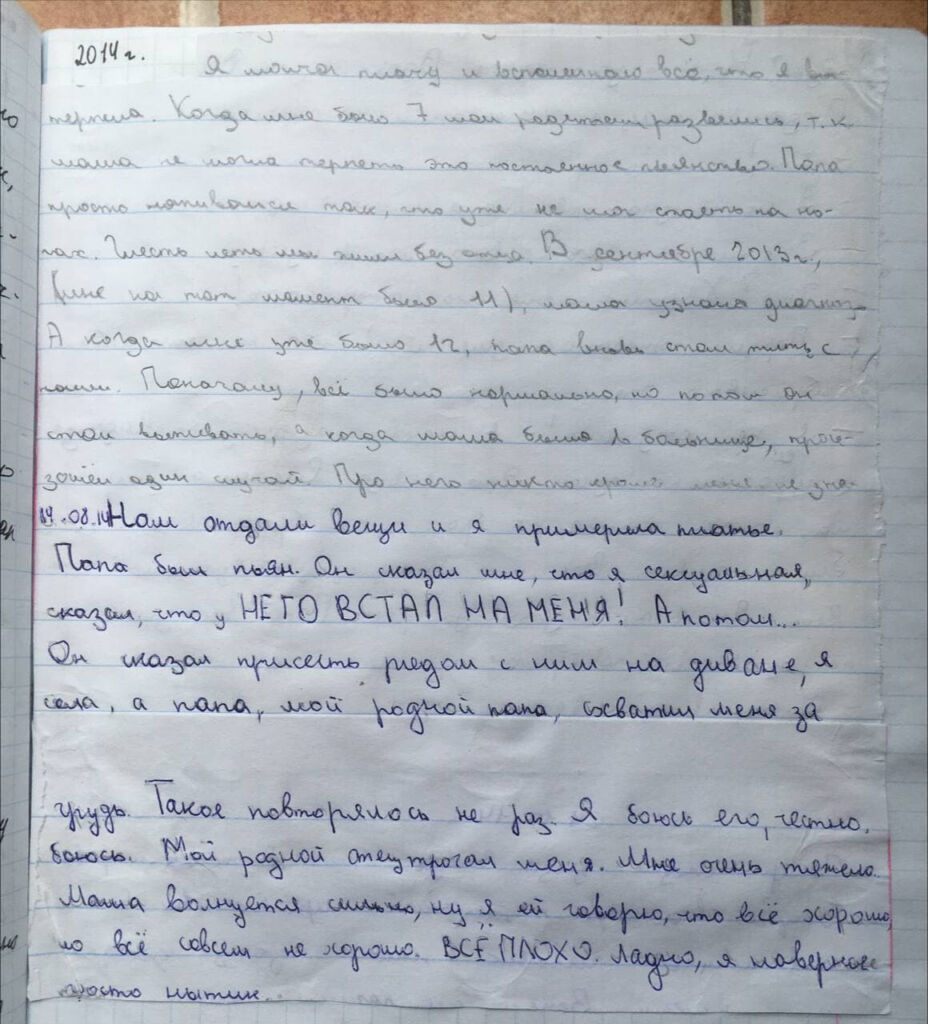 2014 г.
Я молча плачу и вспоминаю всё, что я вы-
терпела. Когда мне было 7 мои родители развелись, т.к.
мама не могла терпеть это постоянное пьянство. Папа
просто напивался так, что уже не мог стоять на но-
гах. Шесть лет мы жили без отца. В сентябре 2013 г.,
(мне на тот момент было 11), мама узнала диагноз.
А когда мне уже было 12, папа вновь стал жить с
нами. Поначалу, всё было нормально, но потом он
стал выпивать, а когда мама была в больнице, прои-
зошёл один случай. Про него никто кроме меня не зна-
14.08.14 Нам отдали вещи и я примерила платье.
Папа был пьян. Он сказал мне, что я сексуальная,
сказал, что у НЕГО ВСТАЛ НА МЕНЯ! А потом...
Он сказал присесть рядом с ним на диване, я
села, а папа, мой родной папа, схватил меня за
грудь. Такое повторялось не раз. Я боюсь его, честно,
боюсь. Мой родной отец трогал меня. Мне очень тяжело.
Мама волнуется сильно, ну я ей говорю, что всё хорошо,
но всё совсем не хорошо. ВСЁ ПЛОХО. Ладно, я наверное
просто нытик..